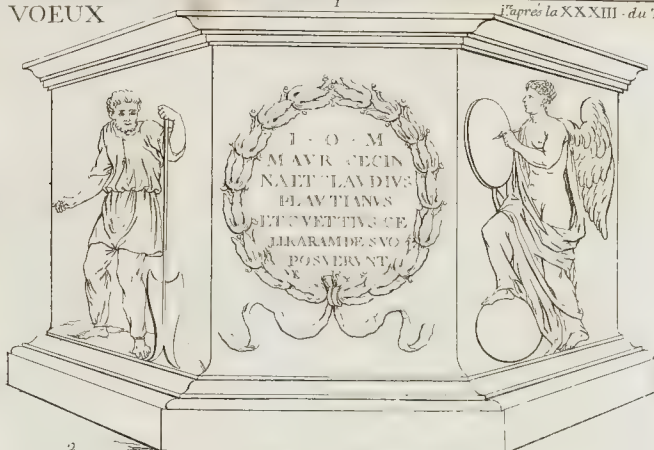 VOEUX
1
j.re après la XXXIII - du T
I · O · M
M AVR CECIN
NA ET CLAVDIVS
PLAVTIANVS
ET C VETTIVS CE
LER ARAM DE SVO
POSVERVNT
2